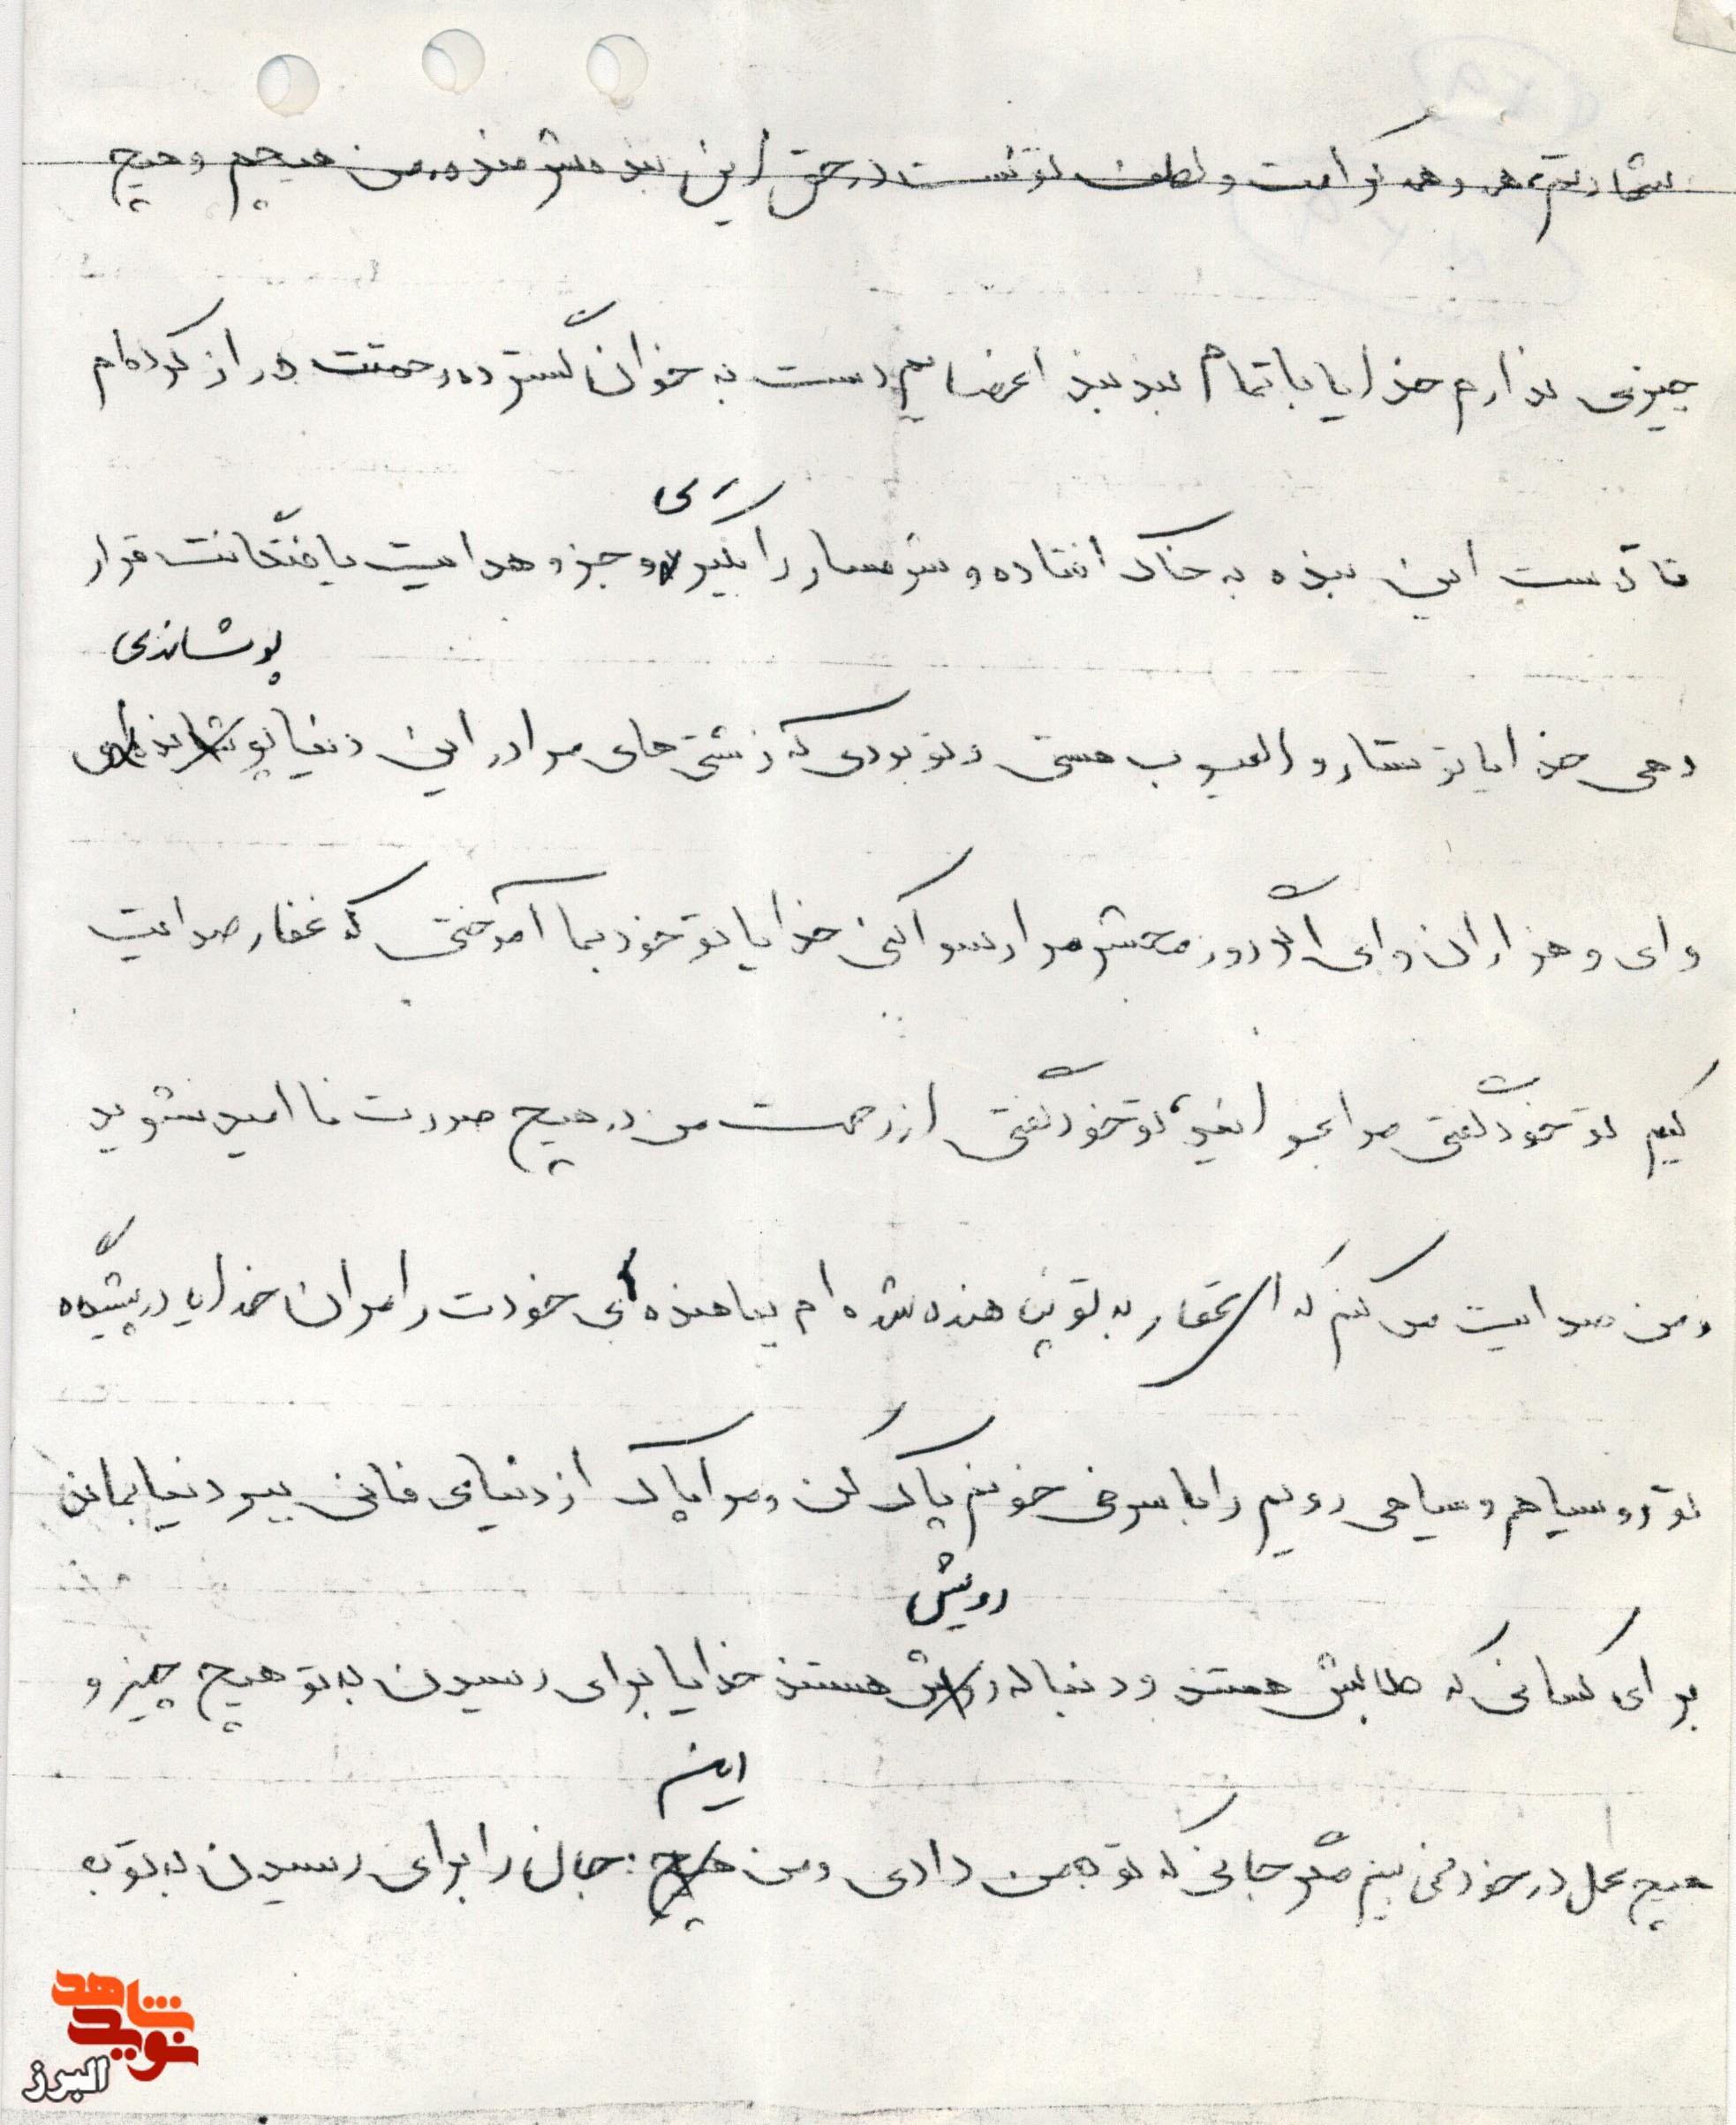 و همه کرامت و لطف توست در حق این بنده شرمنده، من هیچم و هیچ
چیزی ندارم خدایا با تمام بند بند اعضایم دست به خوان گسترده رحمتت دراز کرده‌ام
تا دست این بنده به خاک افتاده و شرمسار را بگیری و جزو هدایت یافتگانت قرار
پوشاندی
دهی خدایا تو ستار و العیوب هستی و تو بودی که زشتی های مرا در این دنیا
وای و هزاران وای اگر روز محشر مرا رسوا کنی خدایا تو خود بما آموختی که غفار صدایت
کنیم تو خود گفتی مرا بخوانید، تو خود گفتی از رحمت من در هیچ صورت نا امید نشوید
و من صدایت می کنم که ای غفار به تو پناهنده شده ام پناهنده ای خودت را مران خدایا در پیشگاه
تو رو سیاهم و سیاهی رویم را با سرخی خونم پاک کن و مرا پاک از دنیای فانی ببر دنیا بماند
رویش
برای کسانی که طالبش هستند و دنباله هستند خدایا برای رسیدن به تو هیچ چیز و
این
هیچ عمل در خود نمی بینم مگر جانی که تو به من دادی و من جان را برای رسیدن به تو به
شاهد
نوید
البرز